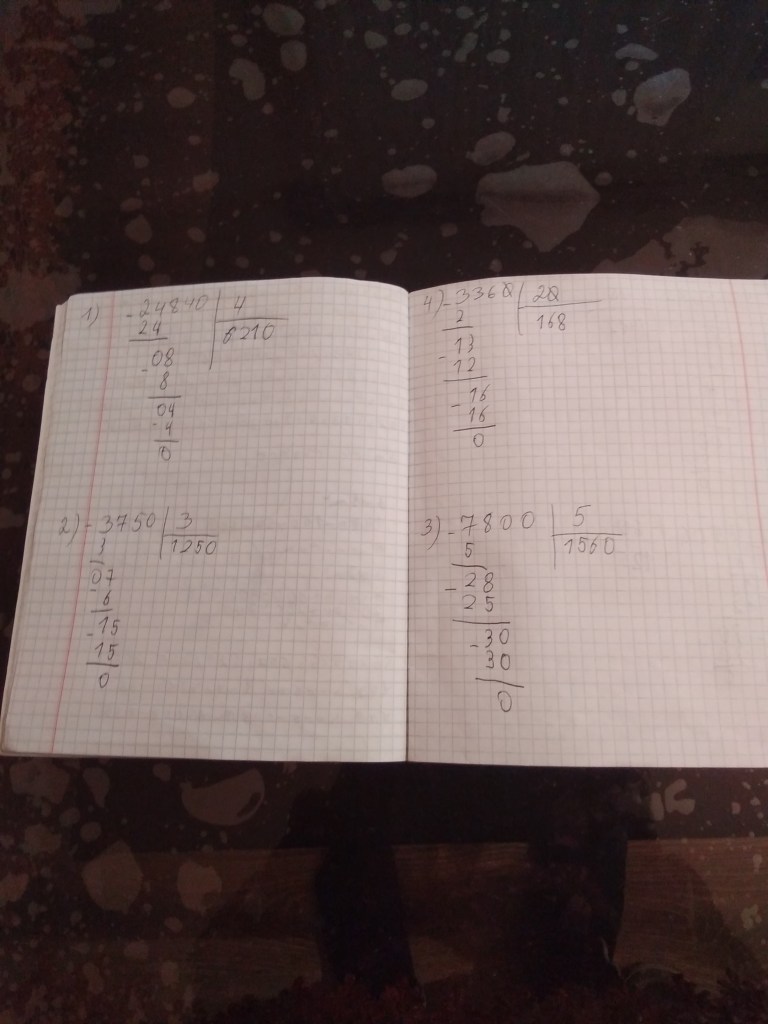 1) -24840 | 4
24 6210
-08
8
04
-4
0
2) -3750 | 3
3 1250
07
-6
-15
15
0
4) -3360 | 20
2 168
-13
12
-16
16
0
3) -7800 | 5
5 1560
-28
25
-30
30
0